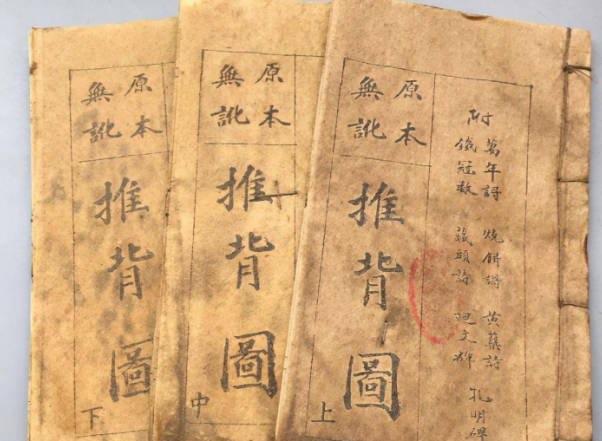 附
萬年詩 燒餅詩 黃蘗詩
鐵冠數 藏頭詩
孔明碑
原本
無訛
推背圖
上
原本
無訛
推背圖
中
原本
無訛
推背圖
下